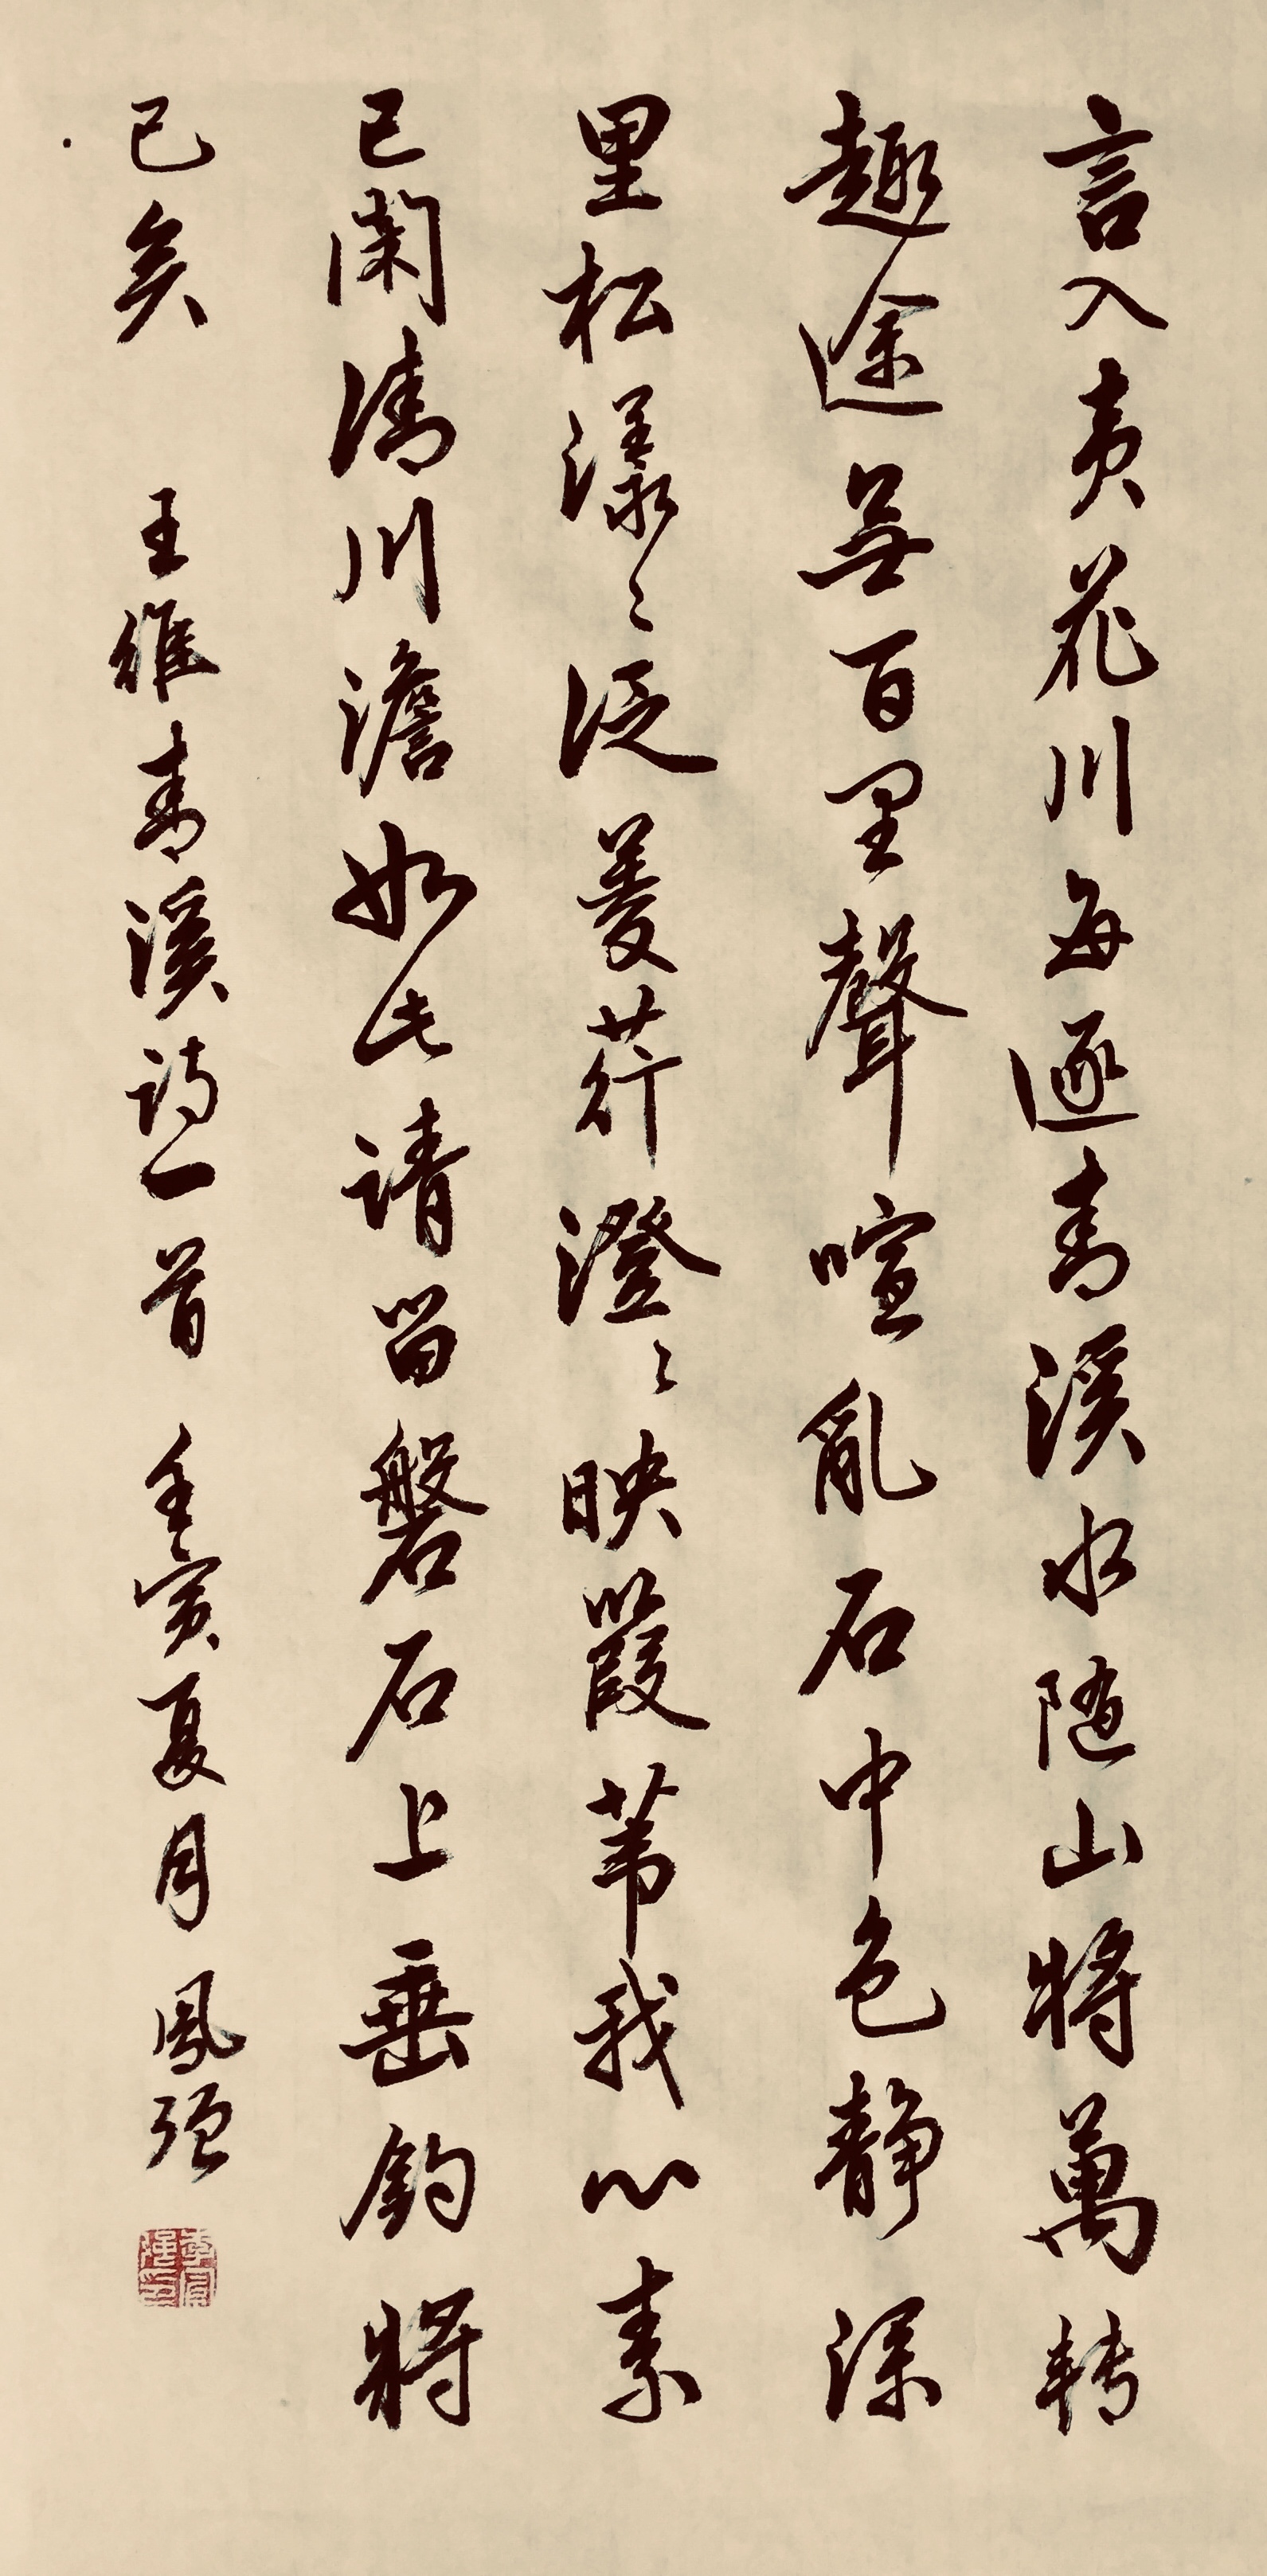 言入黄花川每逐青溪水随山将萬转
趣途無百里聲喧亂石中色静深
里松漾〻泛菱荇澄〻映葭苇我心素
已闲清川澹如此请留磐石上垂钓将
已矣 王维青溪诗一首 壬寅夏月 凤强